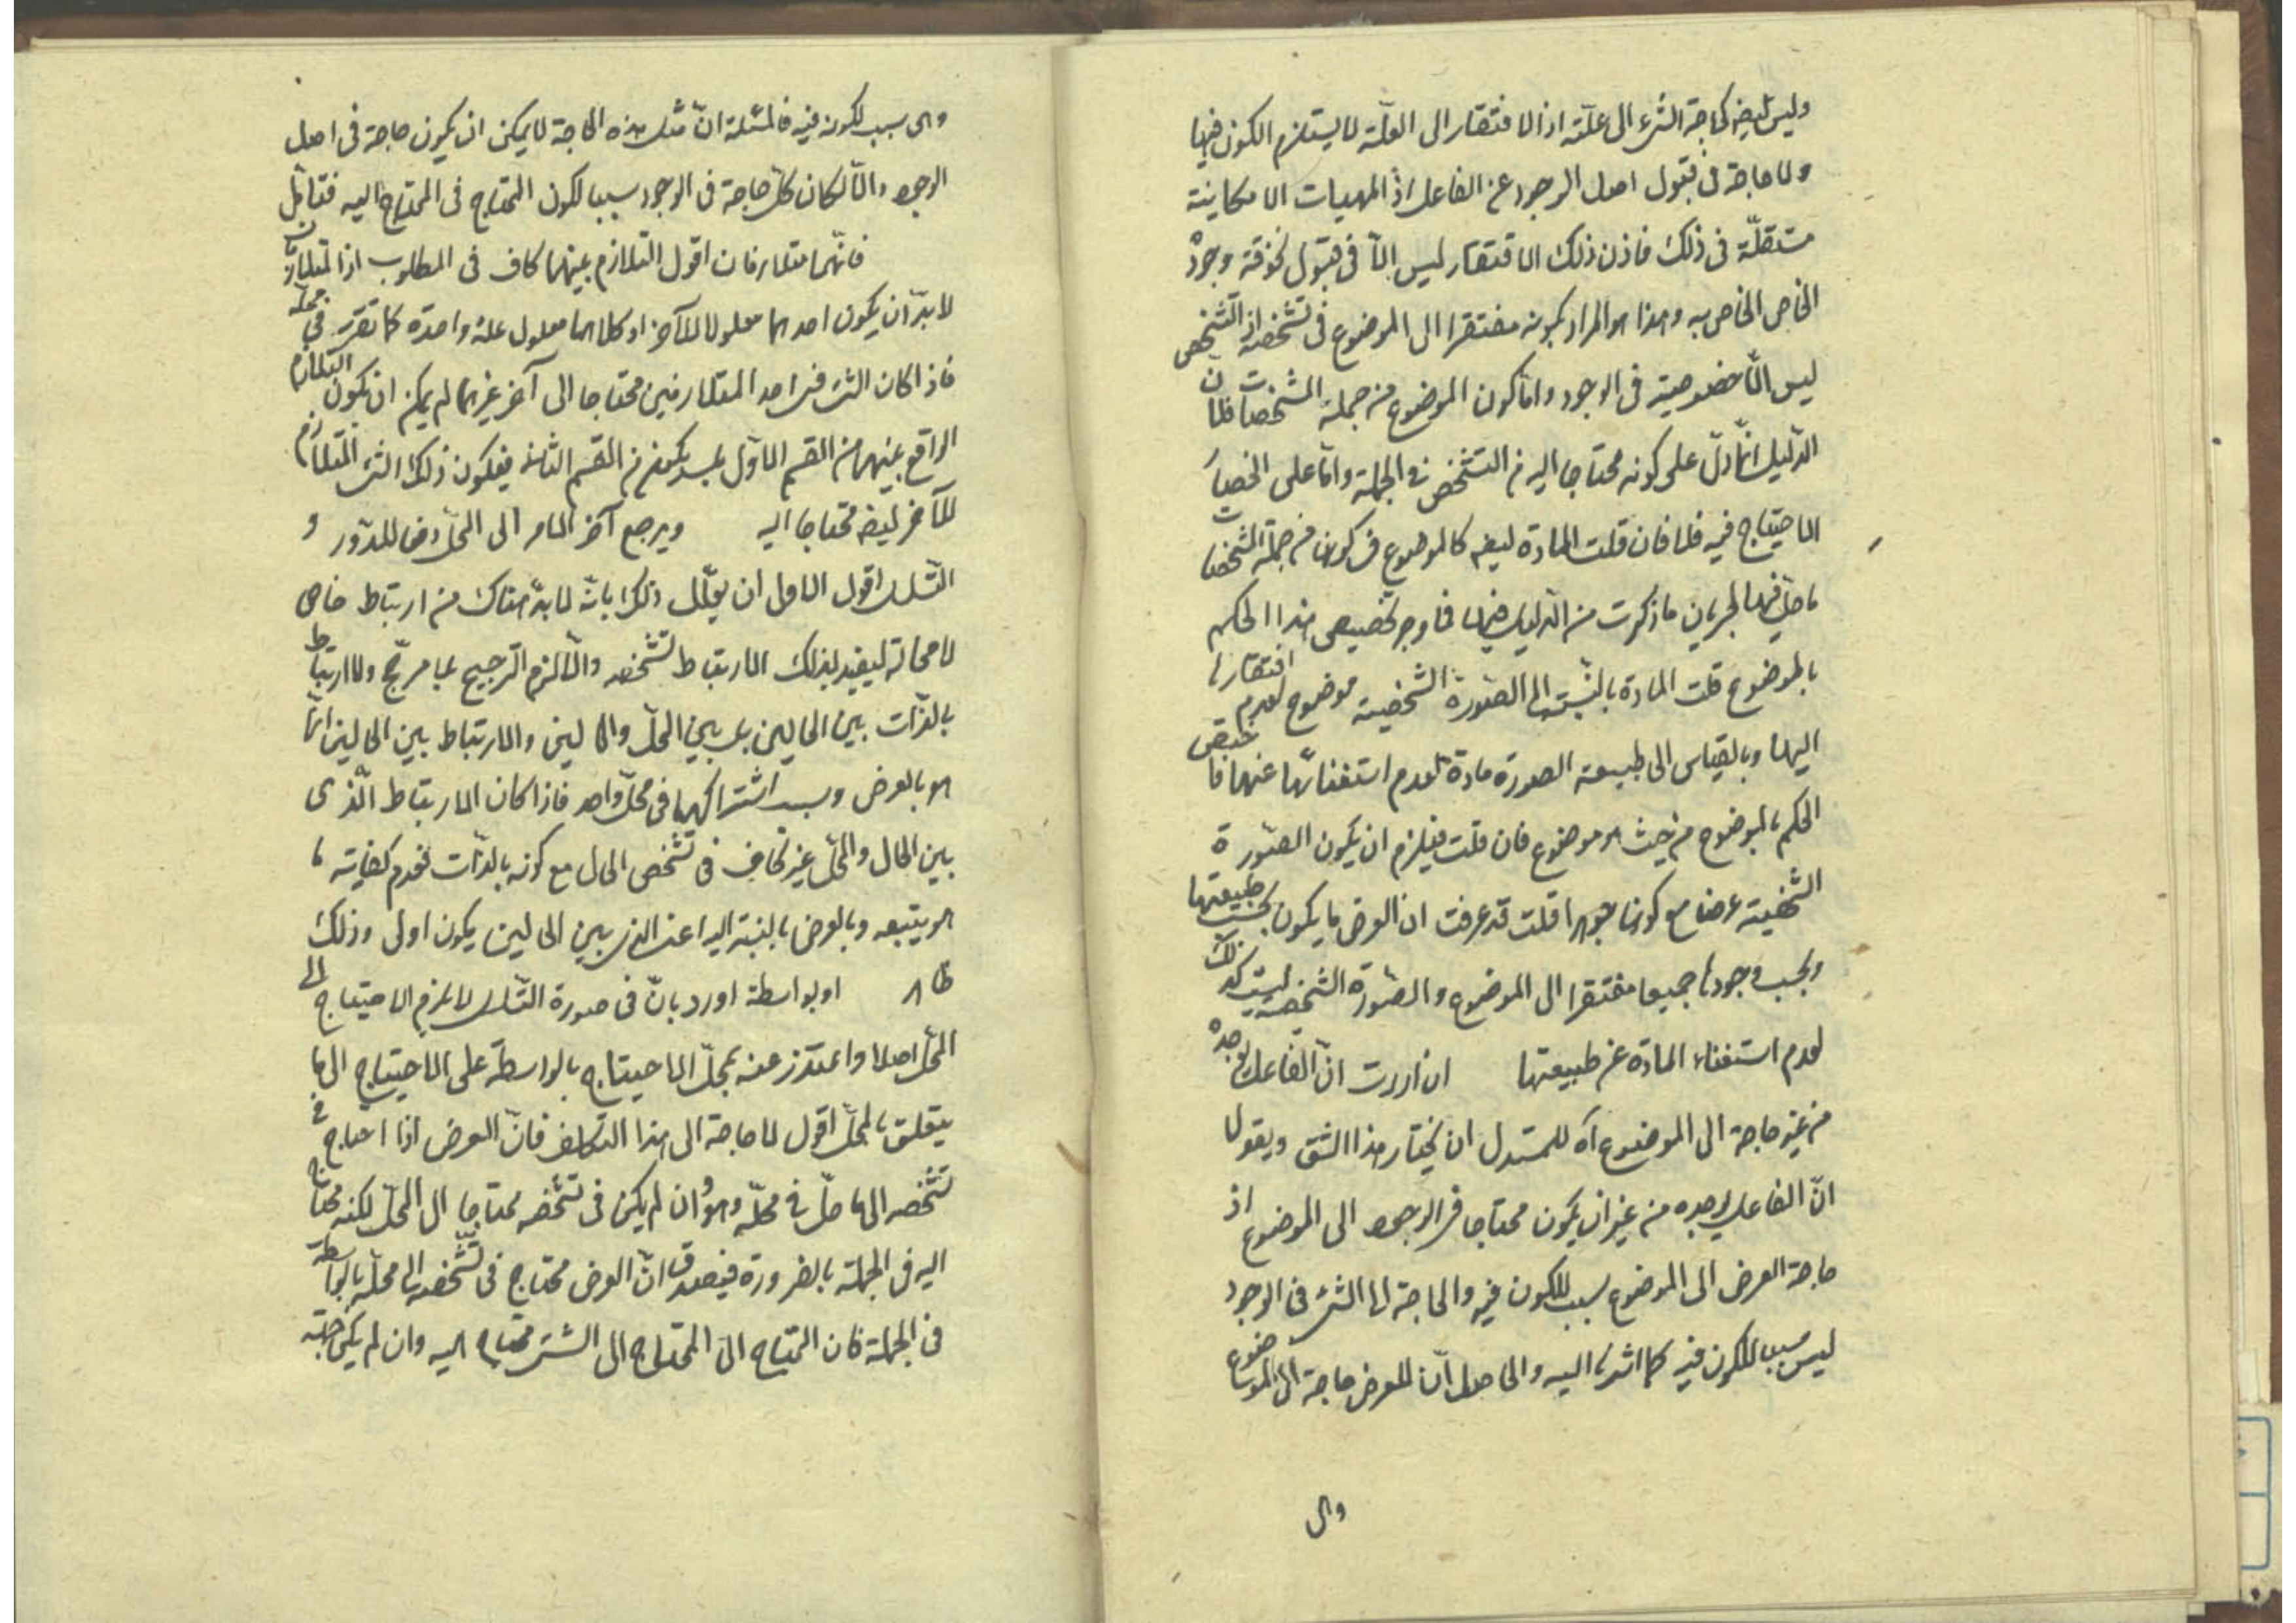 وليس ايضا كحاجة الشئ الى علته اذ الافتقار الى العلة لا يستلزم الكون فيها
ولا حاجة فى قبول اصل الوجود عن الفاعل اذ المهيات الامكانية
مستقلة فى ذلك فاذن ذلك الافتقار ليس الا فى قبول نحو وجوده
الخاص الخاص به وهذا هو المراد بكونه مفتقرا الى الموضوع فى تشخصه اذ التشخص
ليس الا خصوصية فى الوجود واما كون الموضوع من جملة المشخصات فلان
الدليل انما دل على كونه محتاجا اليه فى التشخص فى الجملة واما على انحصار
الاحتياج فيه فلا فان قلت المادة ايضا كالموضوع فى كونها من جملة المشخصات
لجريان ما ذكرت من الدليل فيها فما وجه تخصيص هذا الحكم
بالموضوع قلت المادة بالنسبة الى الصورة الشخصية موضوع لعدم افتقارها
اليها وبالقياس الى طبيعة الصورة مادة لعدم استغنائها عنها فاختص
الحكم بالموضوع من حيث هو موضوع فان قلت فيلزم ان يكون الصورة
الشخصية عرضا مع كونها جوهرا قلت قد عرفت ان العرض ما يكون بحسب طبيعتها
وبحسب وجودها جميعا مفتقرا الى الموضوع والصورة الشخصية ليست كذلك
لعدم استغناء المادة عن طبيعتها ان اردت ان الفاعل يوجده
من غير حاجة الى الموضوع آه للمستدل ان يختار هذا الشق ويقول
ان الفاعل يوجده من غير ان يكون محتاجا فى الوجود الى الموضوع اذ
حاجة العرض الى الموضوع سبب للكون فيه والحاجة لها الشئ فى الوجود
ليس سببا للكون فيه كما اشرنا اليه والحاصل ان للعرض حاجة الى الموضوع
وهى
وهى سبب لكونه فيه ان مثل هذه الحاجة لا يمكن ان يكون حاجة فى اصل
الوجود والا لكان كل حاجة فى الوجود سببا لكون المحتاج فى المحتاج اليه فتامل
فانهما متلازمان اقول التلازم بينهما كاف فى المطلوب اذ المتلازمان
لا بد ان يكون احدهما معلولا للآخر او كلاهما معلول علة واحدة كما تقرر فى محله
فاذا كان الشئ فى احد المتلازمين محتاجا الى آخر غيرهما لم يمكن ان يكون التلازم
الواقع بينهما من القسم الاول بل يكون من القسم الثانى فيكون ذلك الشئ المتلازم
للآخر ايضا محتاجا اليه ويرجع آخر الامر الى المحل دفعا للدور و
التسلسل اقول الاولى ان يعلل ذلك بانه لا بد هناك من ارتباط خاص
لا محالة ليفيد بذلك الارتباط تشخصه والا لزم الترجيح بلا مرجح ولا ارتباط
بالذات بين الحالين بل بين المحل والحالين والارتباط بين الحالين انما
هو بالعرض وبسبب اشتراكهما فى محل واحد فاذا كان الارتباط الذى
بين الحال والمحل غير كاف فى تشخص الحال مع كونه بالذات فعدم كفاية ما
هو يتبعه وبالعرض بالنسبة اليه اعنى الذى بين الحالين يكون اولى وذلك
ظاهر او بواسطة اورد بان فى صورة التسلسل لا يلزم الاحتياج الى
المحل اصلا واعتذر عنه بحمل الاحتياج بالواسطة على الاحتياج الى ما
يتعلق بالمحل اقول لا حاجة الى هذا التكلف فان العرض اذا احتاج فى
تشخصه الى ما حل فى محله وهو وان لم يكن فى تشخصه محتاجا الى المحل لكنه محتاج
اليه فى الجملة بالضرورة فيصدق ان العرض محتاج فى تشخصه الى محله بالواسطة
فى الجملة فان المحتاج الى المحتاج الى الشئ محتاج اليه وان لم يكن حاجته